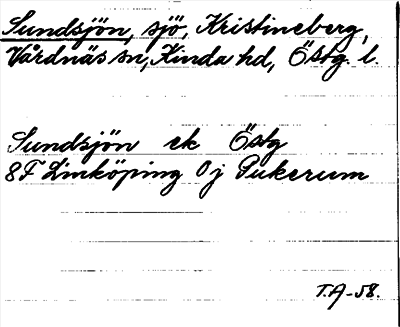 Sundsjön, sjö, Kristineberg,
Vårdnäs sn, Kinda hd, Östg l.
Sundsjön ek Östg
8F Linköping 0j Pukerum
T.A-58.